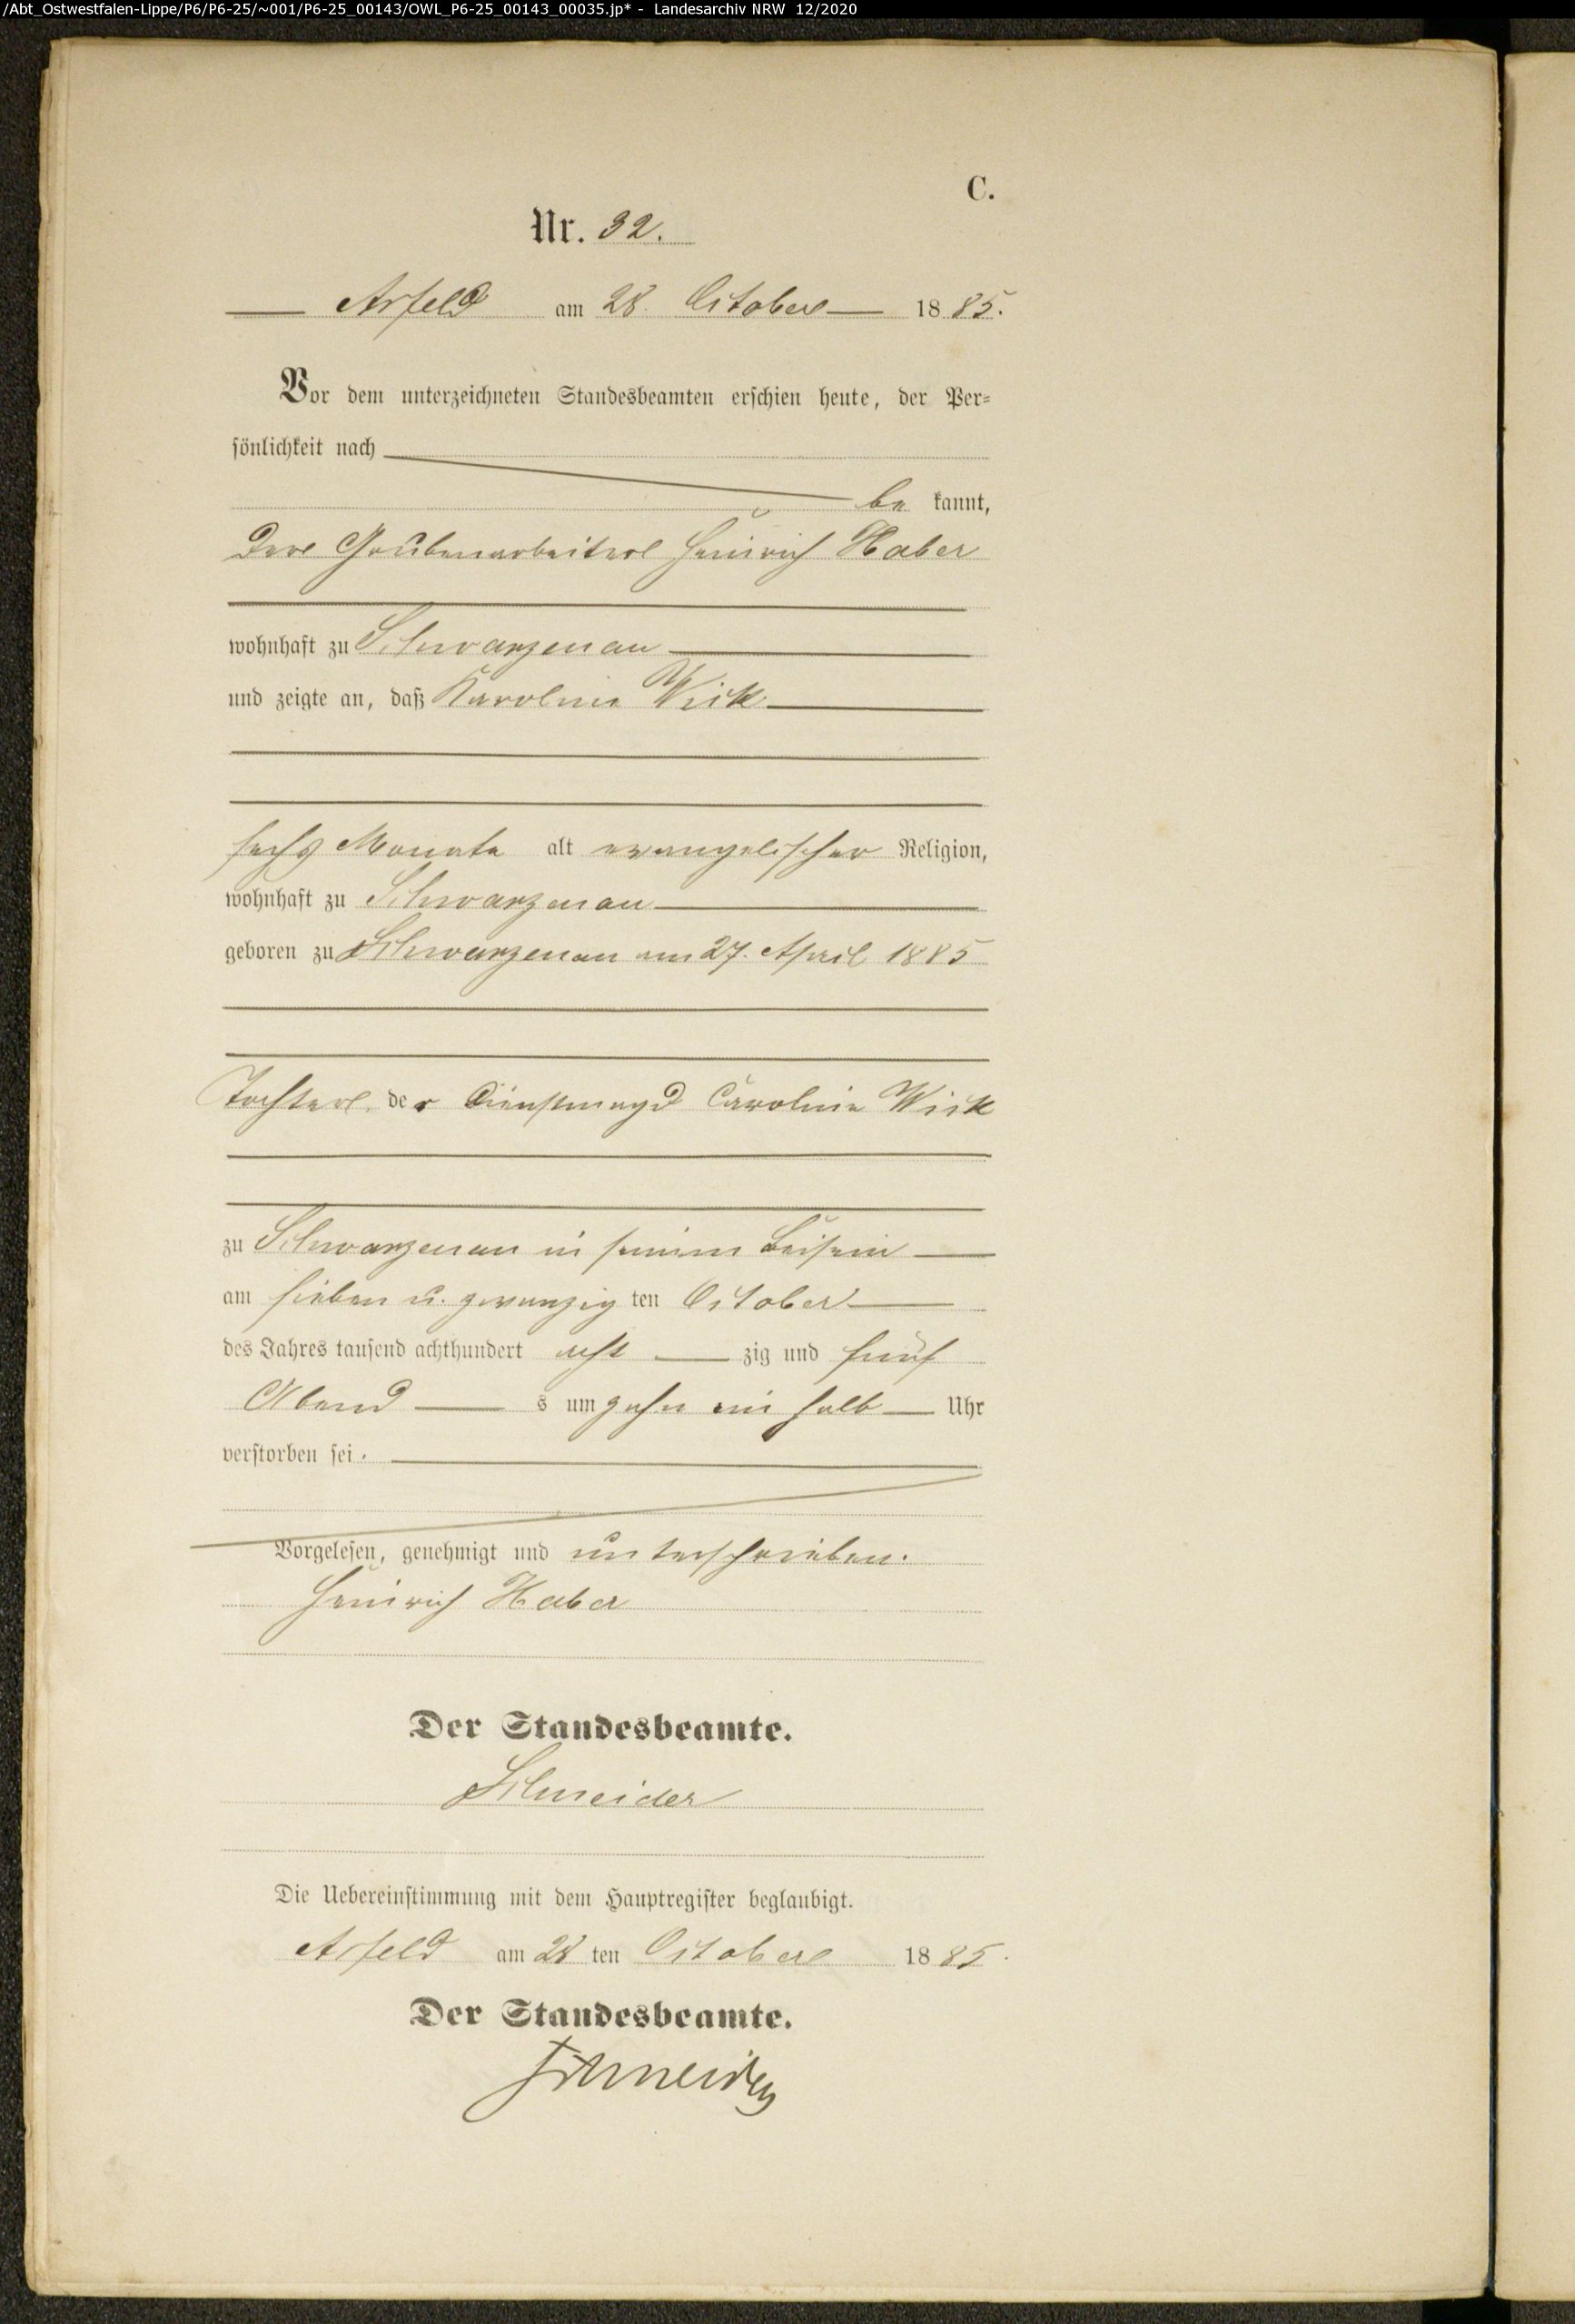 /Abt_Ostwestfalen-Lippe/P6/P6-25/~001/P6-25_00143/OWL_P6-25_00143_00035.jp* - Landesarchiv NRW 12/2020
C.
Nr. 32.
Arfeld am 28. October 1885.
Vor dem unterzeichneten Standesbeamten erschien heute, der Per-
sönlichkeit nach
be kannt,
Der Grubenarbeiter Heinrich Haber
wohnhaft zu Schwarzenau
und zeigte an, daß Karoline Wick
sechs Monate alt evangelischer Religion,
wohnhaft zu Schwarzenau
geboren zu Schwarzenau am 27. April 1885
Tochter der Dienstmagd Caroline Wick
zu Schwarzenau in seinem Beisein
am sieben u. zwanzig ten October
des Jahres tausend achthundert acht zig und fünf
Abend s um zehn ein halb Uhr
verstorben sei.
Vorgelesen, genehmigt und unterschrieben.
Heinrich Haber
Der Standesbeamte.
Schneider
Die Uebereinstimmung mit dem Hauptregister beglaubigt.
Arfeld am 28 ten October 1885.
Der Standesbeamte.
Schneider